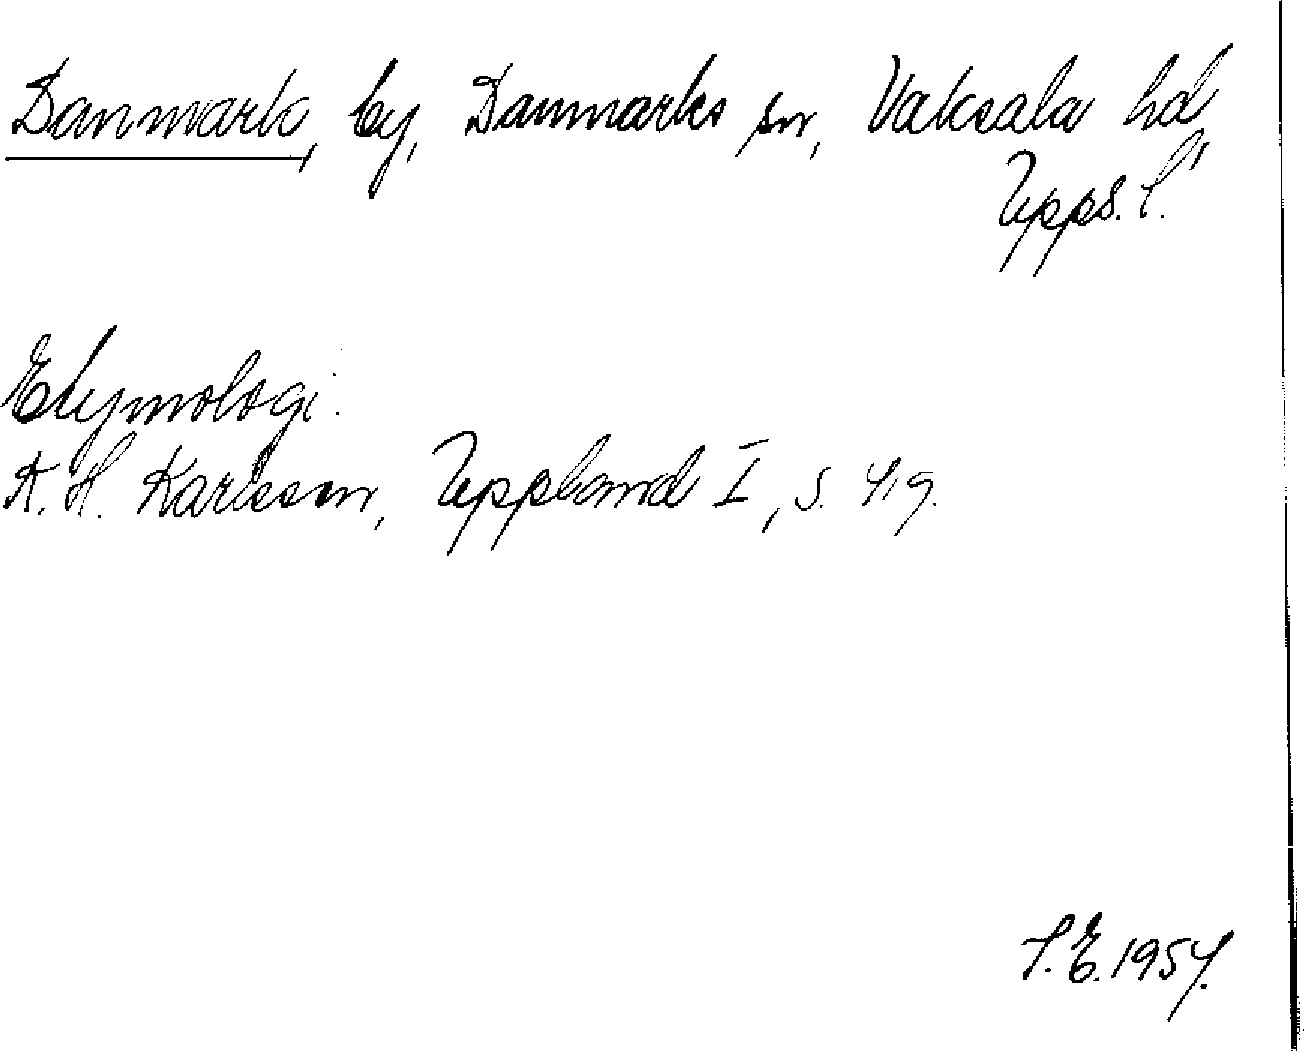 Danmark, by, Danmarks sn, Vaksala hd,
Upps. l.
Etymologi.
A. H. Karlsson, Uppland I, s. 419.
S. E. 1954.